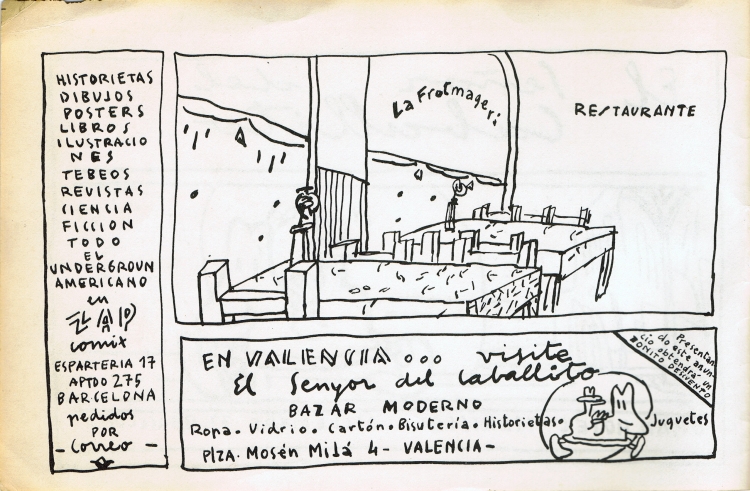 HISTORIETAS
DIBUJOS
POSTERS
LIBROS
ILUSTRACIO
NES
TEBEOS
REVISTAS
CIENCIA
FICCION
TODO
EL
UNDERGROUN
AMERICANO
en
ZAP
comix
ESPARTERIA 17
APTDO 275
BARCELONA
pedidos
POR
- Correo -
La Frotmageri
RESTAURANTE
EN VALENCIA ... visite
El Senyor del Caballito
BAZAR MODERNO
Ropa. Vidrio. Cartón. Bisutería. Historietas. Juguetes
PlZA. Mosén Milá 4 - VALENCIA -
Presentan
do este anun
cio obtendrá un
BONITO DESCUENTO